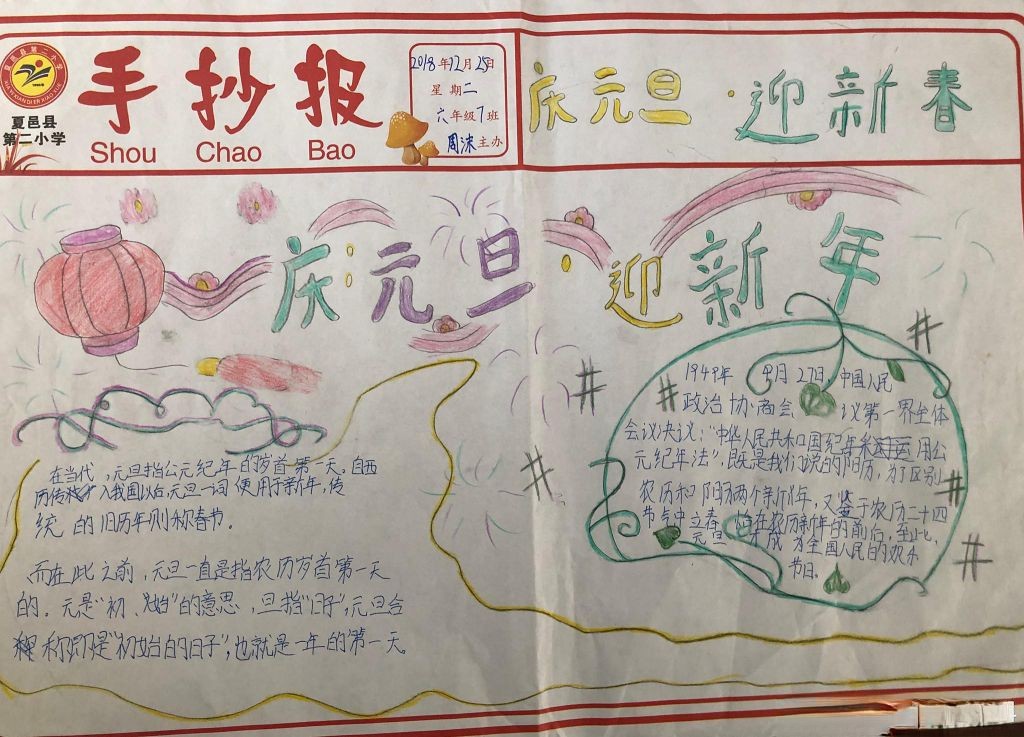 夏邑县第二小学
XIA YI XIAN DI ER XIAO XUE
夏邑县
第二小学
手抄报
Shou Chao Bao
2018年12月25日
星期二
六年级7班
周沫主办
庆元旦·迎新春
庆元旦·迎新年
在当代,元旦指公元纪年的岁首第一天。自西
历传入我国以后,元旦一词便用于新年,传
统的旧历年则称春节。
而在此之前,元旦一直是指农历岁首第一天
的。元是"初、始"的意思,旦指"日子",元旦合
称即是"初始的日子",也就是一年的第一天。
1949年9月27日,中国人民
政治协商会议第一界全体
会议决议:"中华人民共和国纪年采用公
元纪年法",既是我们说的阳历,为了区别
农历和阳历两个新年,又鉴于农历二十四
节气中立春恰在农历新年的前后,至此,
元旦才成为全国人民的欢乐
节日。